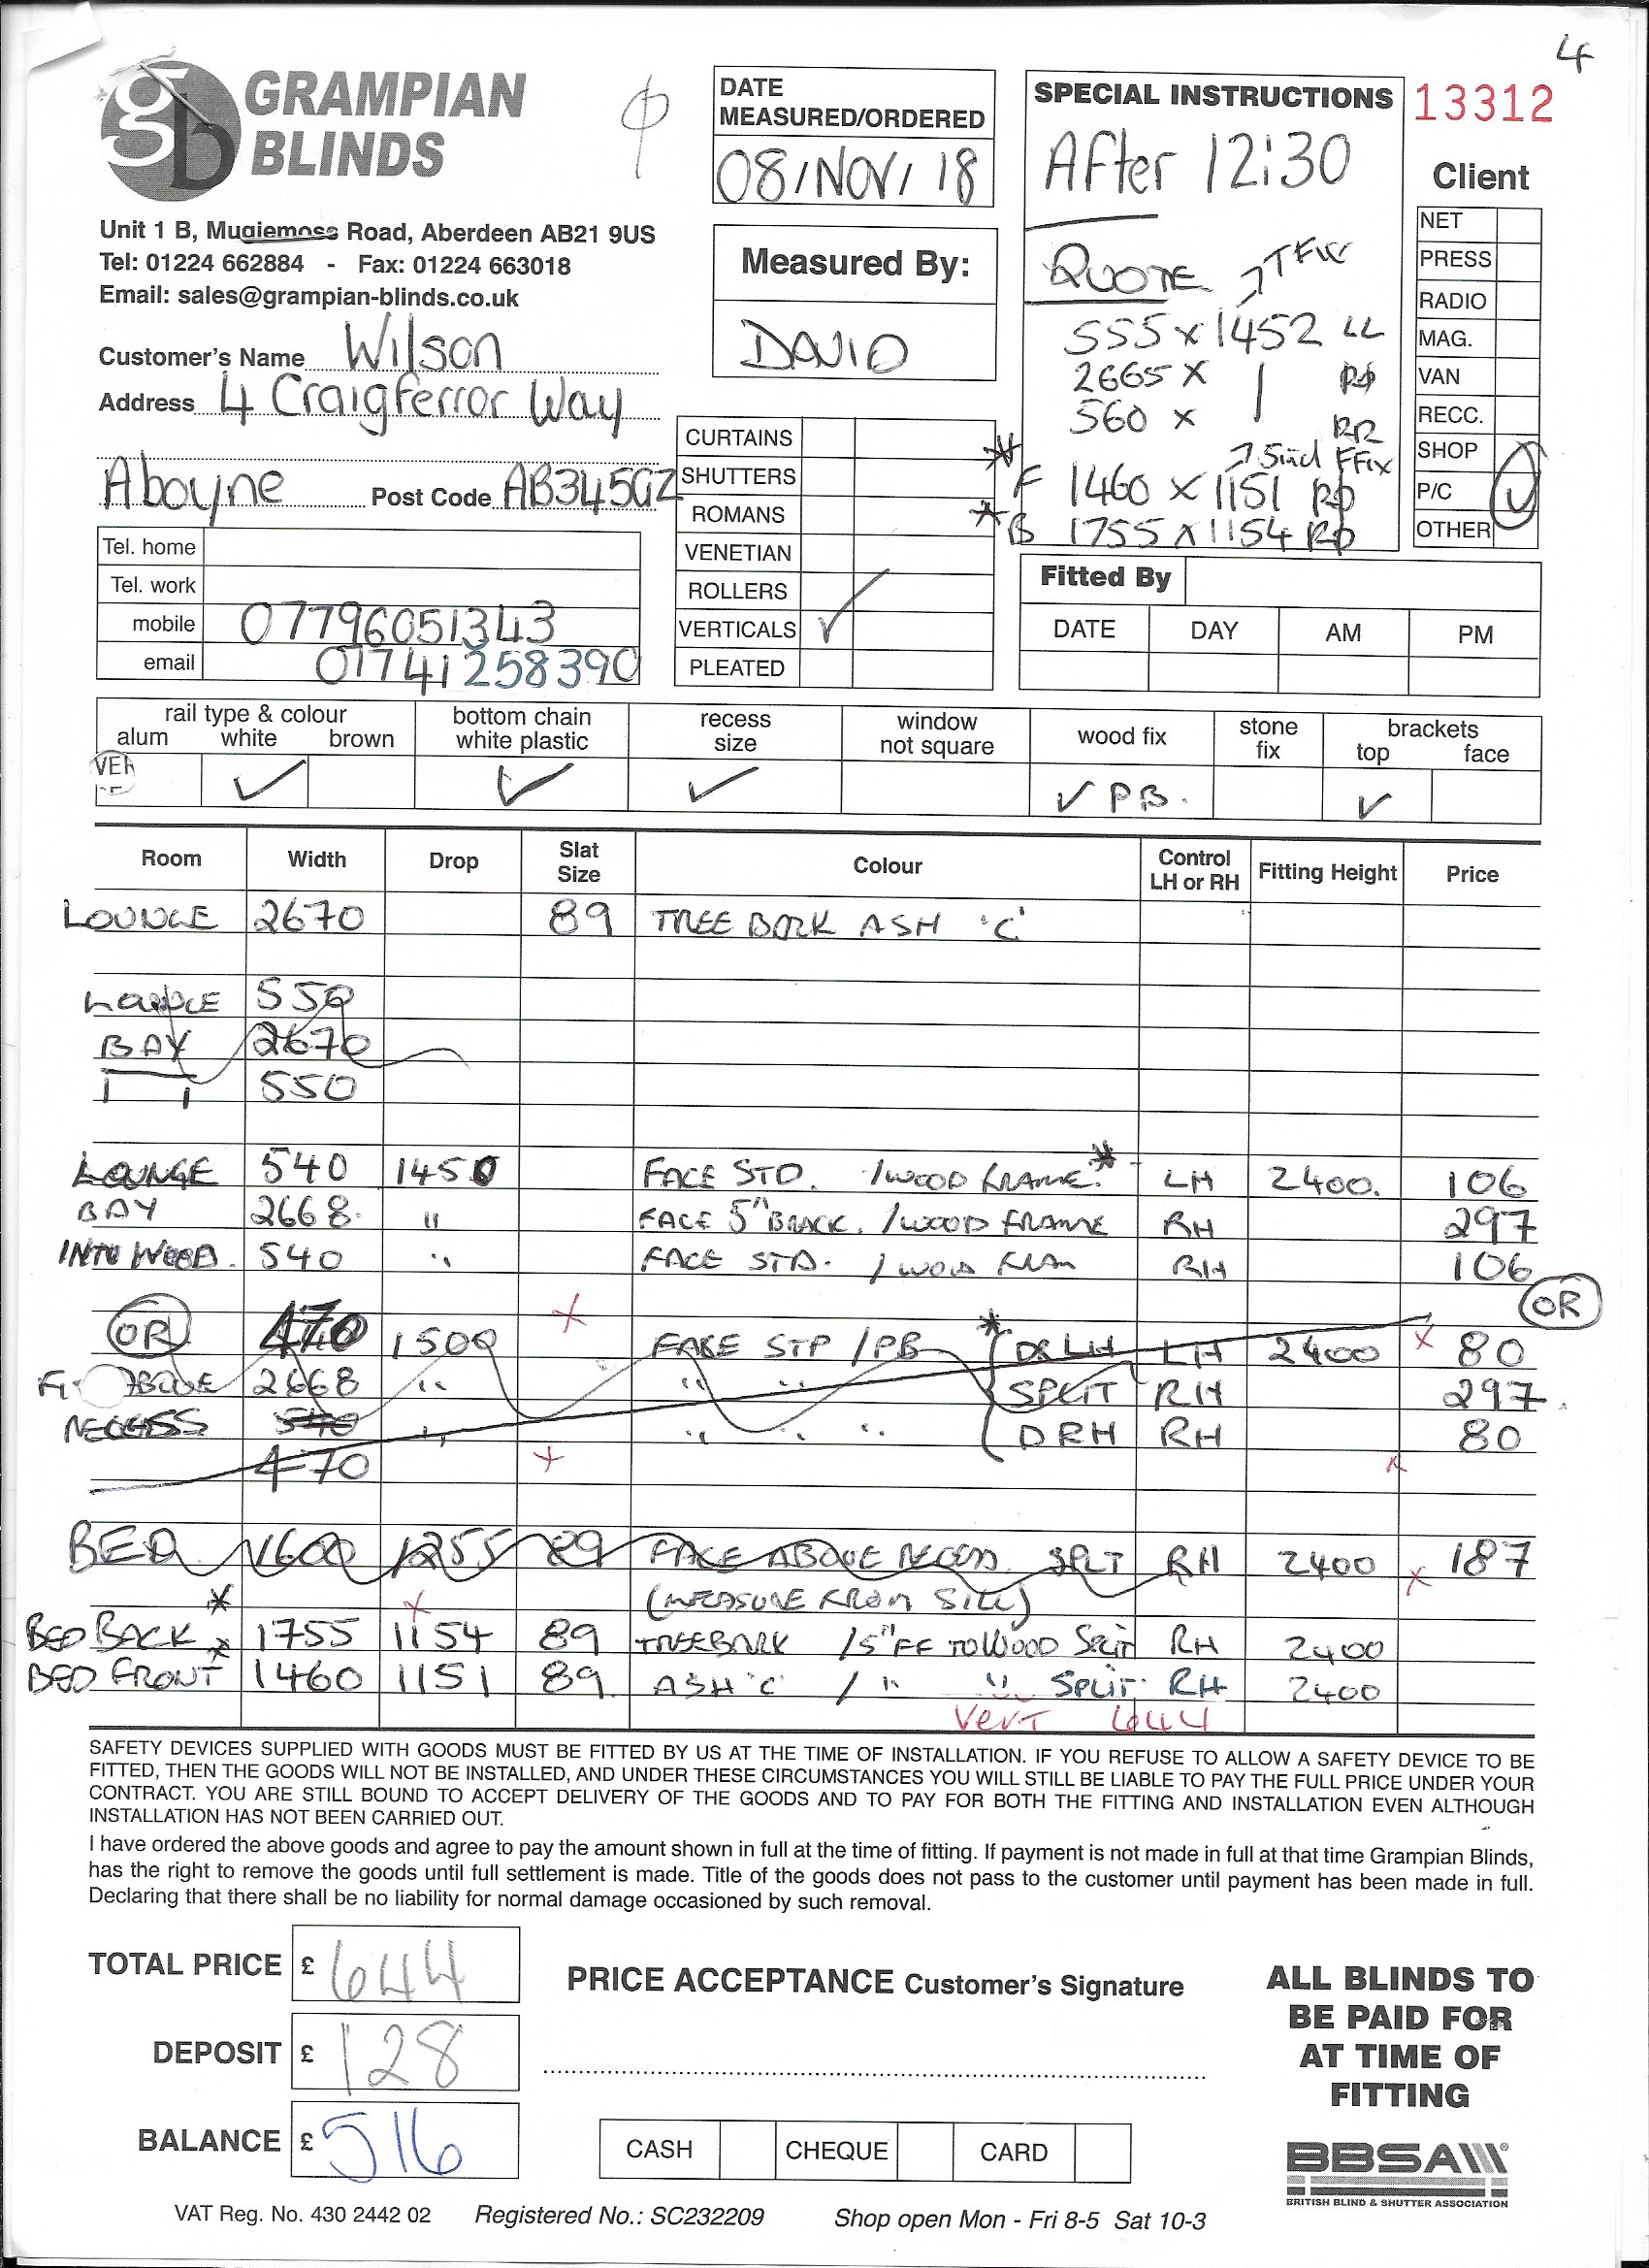 4
GRAMPIAN
BLINDS
Unit 1 B, Mugiemoss Road, Aberdeen AB21 9US
Tel: 01224 662884 - Fax: 01224 663018
Email: sales@grampian-blinds.co.uk
Customer's Name Wilson
Address 4 Craigferror Way
Aboyne Post Code AB345GZ
Tel. home
Tel. work
mobile 07796051343
email 01741258390
DATE
MEASURED/ORDERED
08/NOV/18
Measured By:
DAVID
CURTAINS
SHUTTERS
ROMANS
VENETIAN
ROLLERS
VERTICALS ✓
PLEATED
SPECIAL INSTRUCTIONS
After 12:30
QUOTE TFW
555 x 1452 LL
2665 x
560 x RR
5ind FFix
F 1460 x 1151
B 1755 x 1154
13312
Client
NET
PRESS
RADIO
MAG.
VAN
RECC.
SHOP
P/C ✓
OTHER
Fitted By
DATE DAY AM PM
rail type & colour
alum white brown
bottom chain
white plastic
recess
size
window
not square
wood fix
stone
fix
brackets
top face
VER ✓ ✓ ✓ ✓ PB. ✓
Room Width Drop Slat Size Colour Control LH or RH Fitting Height Price
LOUNGE 2670 89 TREE BARK ASH 'C'
LOUNGE 550
BAY 2670
550
LOUNGE 540 1450 FACE STD. /WOOD FRAME.* LH 2400. 106
BAY 2668. " FACE 5" BRACK. /WOOD FRAME RH 297
INTO WOOD. 540 " FACE STD. / WOOD FRAM RH 106
OR
OR 470 1500 FACE STD /PB * DR LH LH 2400 x 80
ABOVE 2668 " " " SPLIT RH 297.
RECESS 540 " " " " DRH RH 80
470
BED 1600 1255 89 FACE ABOVE RECESS SPLT RH 2400 x 187
(MEASURE FROM SILL)
BED BACK * 1755 1154 89 TREEBARK /5" FF TO WOOD SPLIT RH 2400
BED FRONT * 1460 1151 89 ASH 'C' / " " SPLIT. RH 2400
VerT 644
SAFETY DEVICES SUPPLIED WITH GOODS MUST BE FITTED BY US AT THE TIME OF INSTALLATION. IF YOU REFUSE TO ALLOW A SAFETY DEVICE TO BE
FITTED, THEN THE GOODS WILL NOT BE INSTALLED, AND UNDER THESE CIRCUMSTANCES YOU WILL STILL BE LIABLE TO PAY THE FULL PRICE UNDER YOUR
CONTRACT. YOU ARE STILL BOUND TO ACCEPT DELIVERY OF THE GOODS AND TO PAY FOR BOTH THE FITTING AND INSTALLATION EVEN ALTHOUGH
INSTALLATION HAS NOT BEEN CARRIED OUT.
I have ordered the above goods and agree to pay the amount shown in full at the time of fitting. If payment is not made in full at that time Grampian Blinds,
has the right to remove the goods until full settlement is made. Title of the goods does not pass to the customer until payment has been made in full.
Declaring that there shall be no liability for normal damage occasioned by such removal.
TOTAL PRICE £ 644
DEPOSIT £ 128
BALANCE £ 516
PRICE ACCEPTANCE Customer's Signature
CASH CHEQUE CARD
ALL BLINDS TO
BE PAID FOR
AT TIME OF
FITTING
BBSA
BRITISH BLIND & SHUTTER ASSOCIATION
VAT Reg. No. 430 2442 02 Registered No.: SC232209 Shop open Mon - Fri 8-5 Sat 10-3